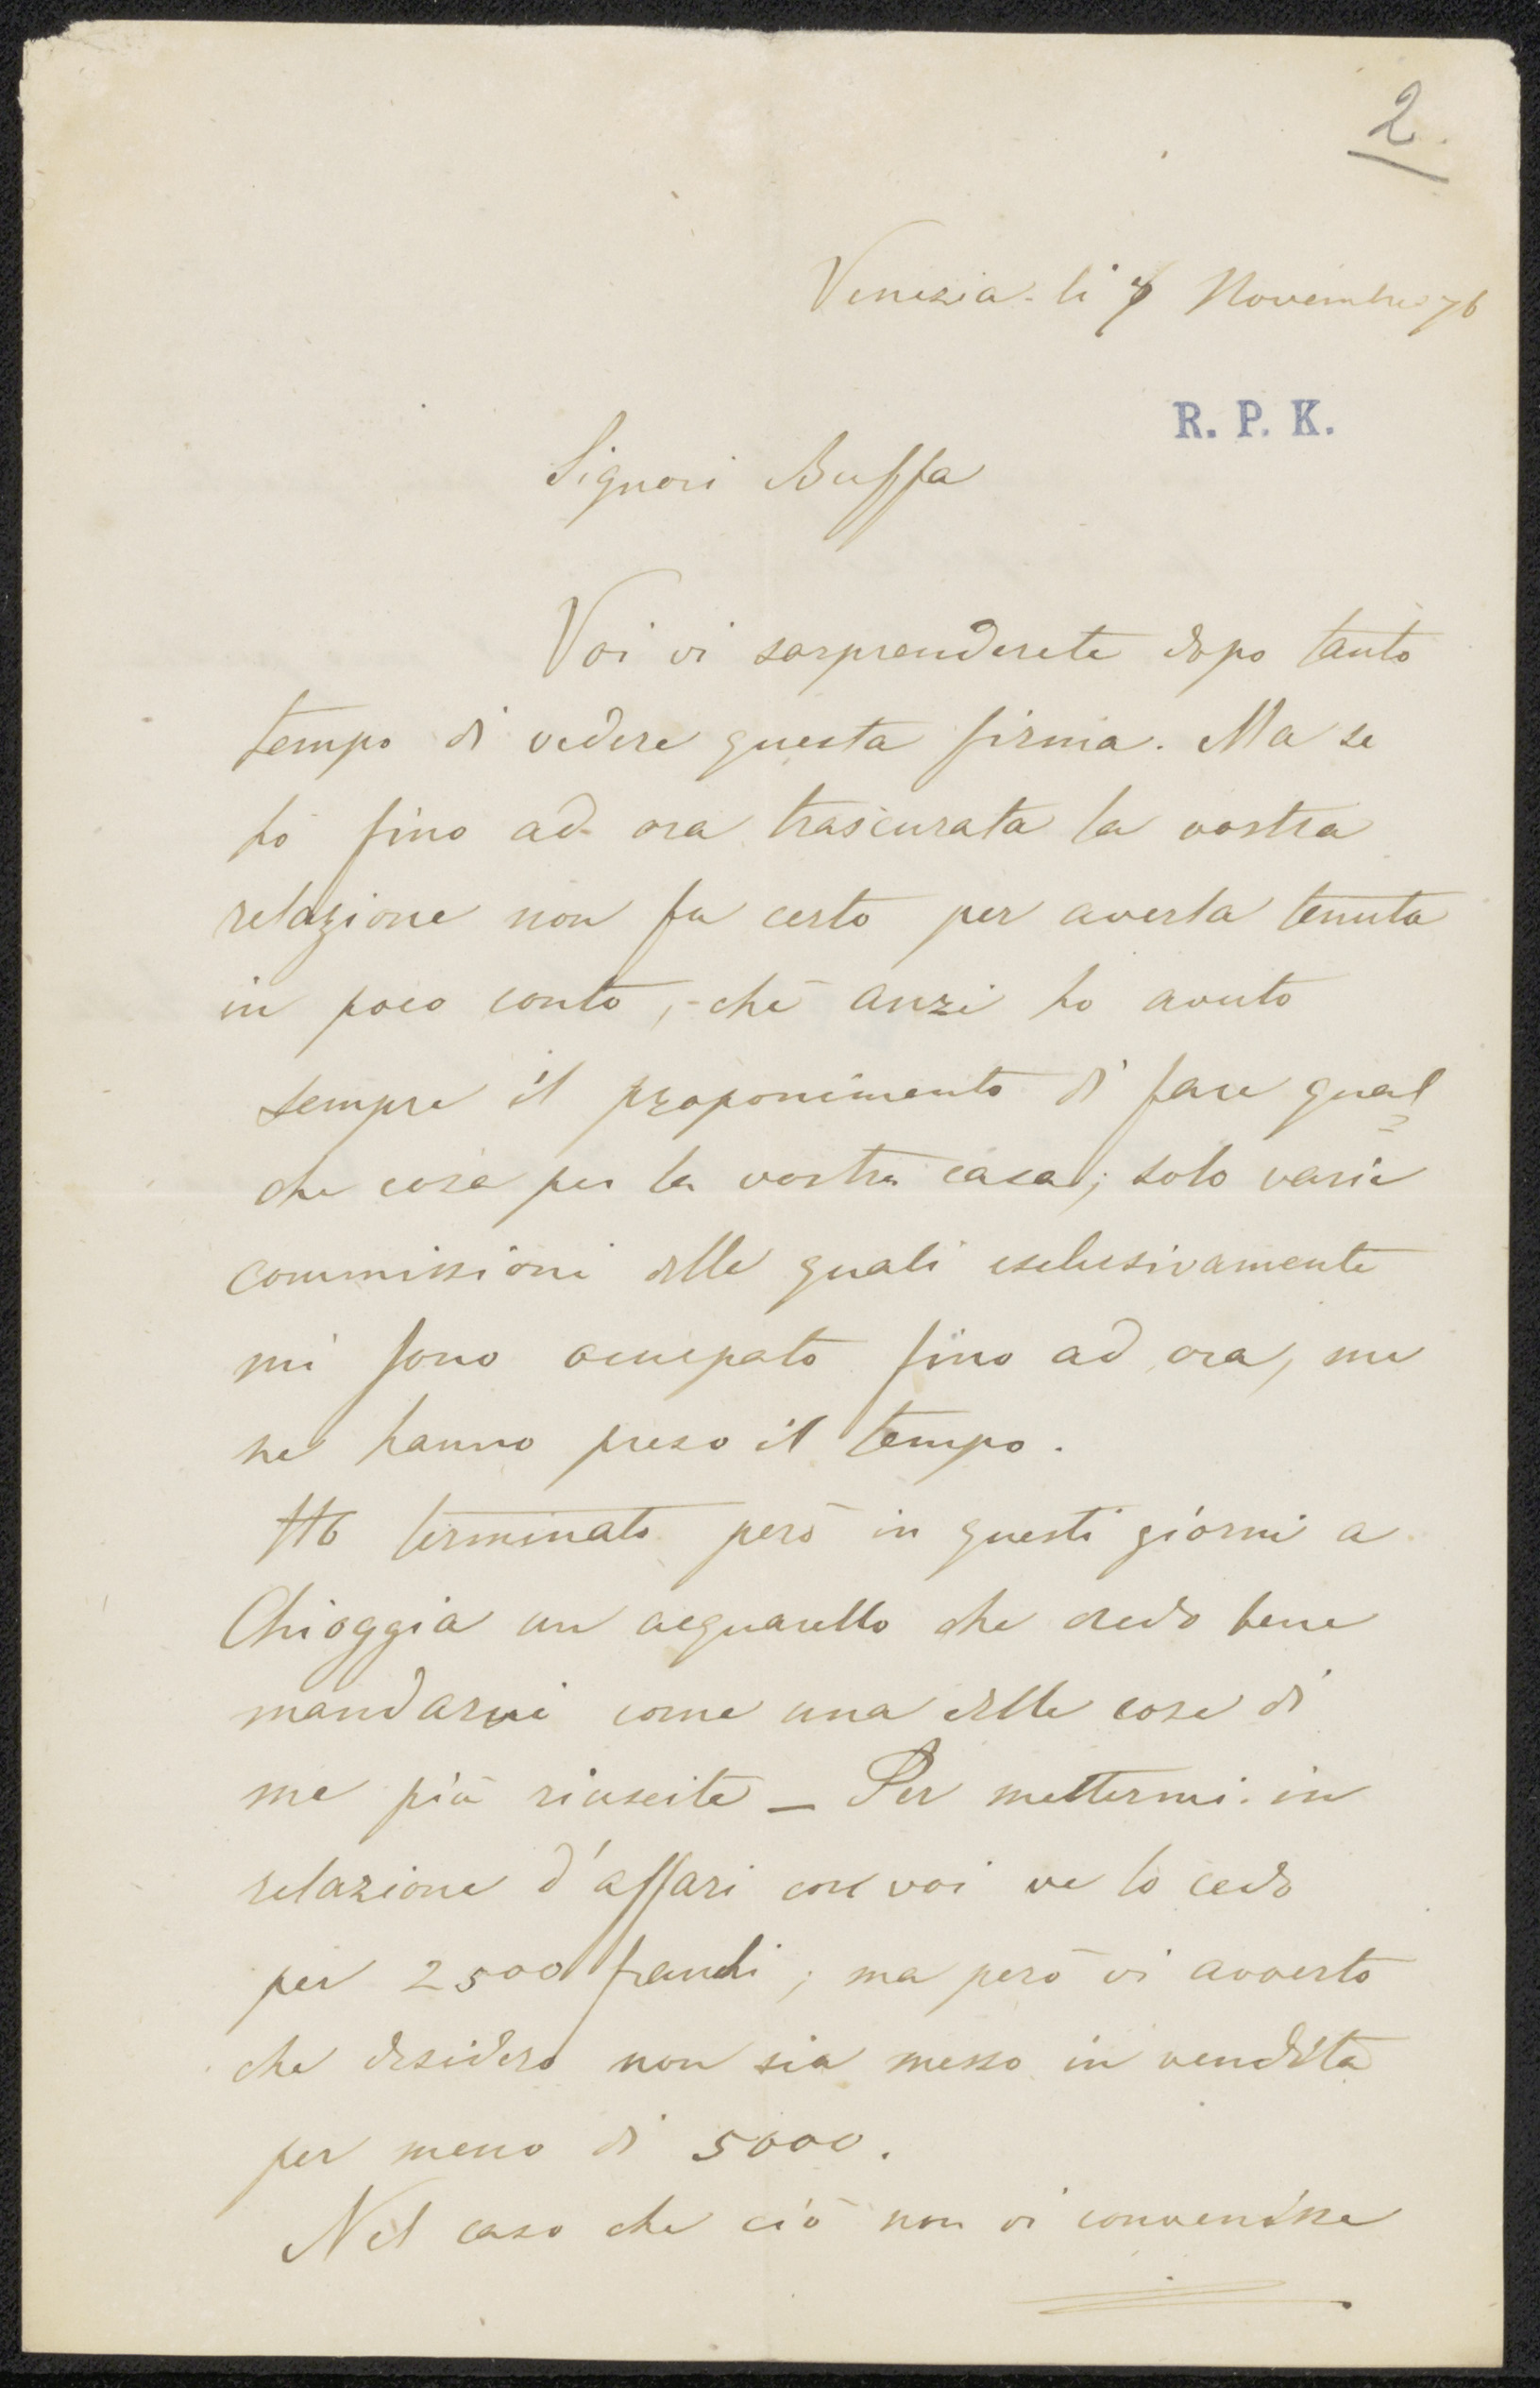 2.
Venezia li Novembre 76
R. P. K.
Signori Buffa
Voi vi sorprenderete dopo tanto
tempo di vedere questa firma. Ma se
ho fino ad ora trascurata la vostra
relazione non fu certo per averla tenuta
in poco conto, chè anzi ho avuto
sempre il proponimento di fare qual=
che cosa per la vostra casa; solo varie
commissioni delle quali esclusivamente
mi sono occupato fino ad ora, me
ne hanno preso il tempo.
Ho terminato però in questi giorni a
Chioggia un acquarello che credo bene
mandarvi come una delle cose di
me più riuscite _ Per mettermi in
relazione d'affari con voi ve lo cedo
per 2500 franchi; ma però vi avverto
che desidero non sia messo in vendita
per meno di 5000.
Nel caso che ciò non vi convenisse